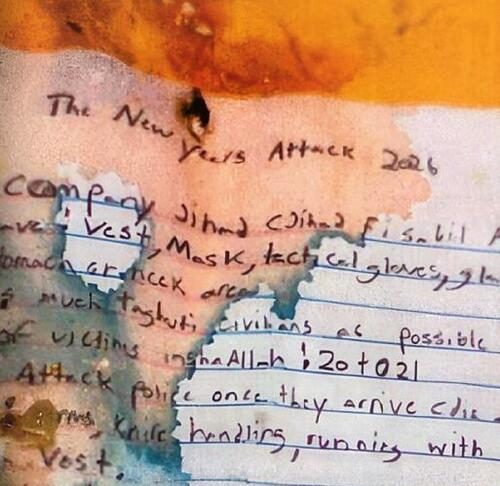 The New Years Attack 2026
company Jihad (Jihad Fisabil A
ave: Vest, Mask, tactical gloves, gla
omach or neck area
much taghuti civilians as possible
of victims inshaAllah: 20 to 21
Attack police once they arrive (die
, Knife handling, running with
Vest.